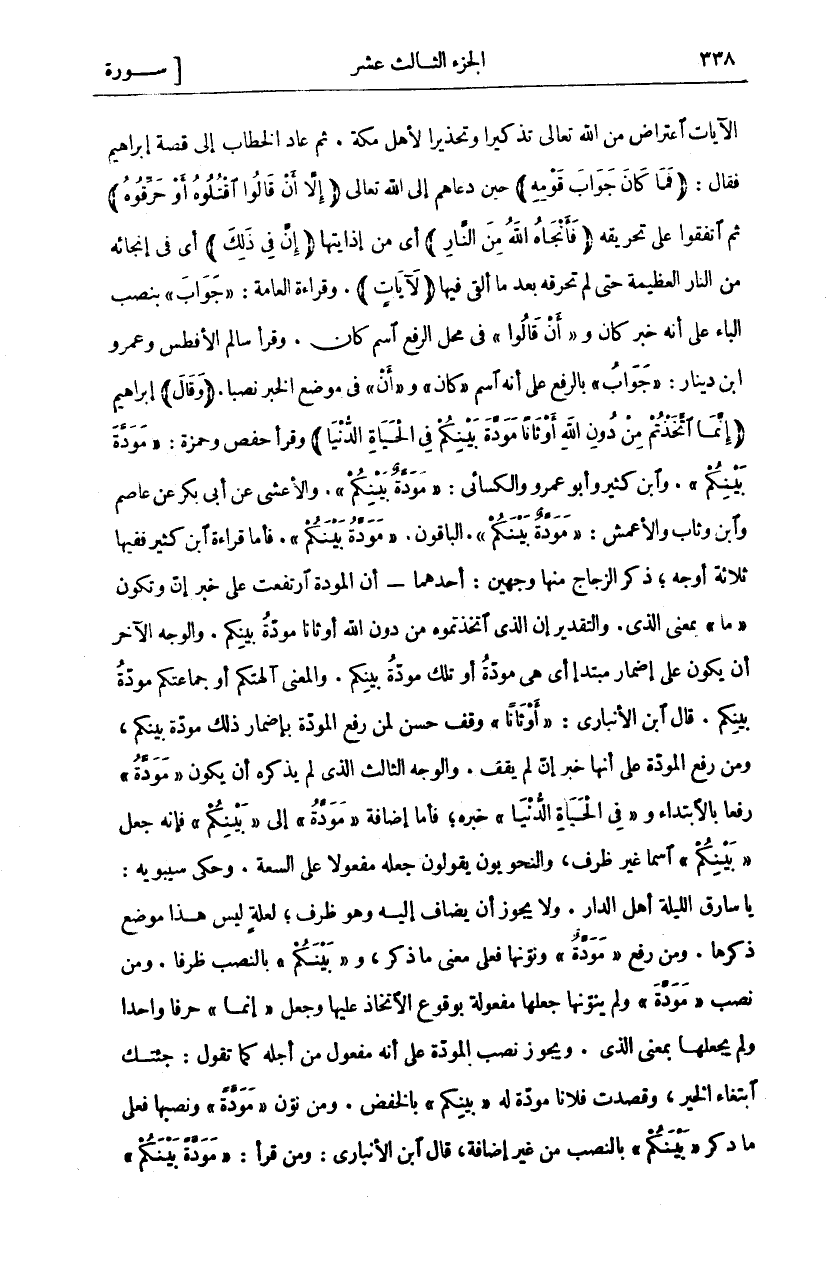 ٣٣٨ الجزء الثالث عشر [ سورة
الآيات ٱعتراض من الله تعالى تذكيرا وتحذيرا لأهل مكة . ثم عاد الخطاب إلى قصة إبراهيم
فقال : ﴿ فَمَا كَانَ جَوَابَ قَوْمِهِ ﴾ حين دعاهم إلى الله تعالى ﴿ إِلَّا أَنْ قَالُوا ٱقْتُلُوهُ أَوْ حَرِّقُوهُ ﴾
ثم ٱتفقوا على تحريقه ﴿ فَأَنْجَاهُ اللهُ مِنَ النَّارِ ﴾ أى من إذايتها ﴿ إِنَّ فِي ذَلِكَ ﴾ أى فى إنجائه
من النار العظيمة حتى لم تحرقه بعد ما ألقى فيها ﴿ لَآيَاتٍ ﴾ . وقراءة العامة : «جَوَابَ» بنصب
الباء على أنه خبر كان و « أَنْ قَالُوا » فى محل الرفع ٱسم كان . وقرأ سالم الأفطس وعمرو
ابن دينار : «جَوَابُ» بالرفع على أنه ٱسم «كان» و «أَنْ» فى موضع الخبر نصبا . ﴿ وَقَالَ ﴾ إبراهيم
﴿ إِنَّمَا ٱتَّخَذْتُمْ مِنْ دُونِ اللهِ أَوْثَانًا مَوَدَّةَ بَيْنِكُمْ فِي الْحَيَاةِ الدُّنْيَا ﴾ وقرأ حفص وحمزة : « مَوَدَّةَ
بَيْنِكُمْ » . وٱبن كثير وأبو عمرو والكسائى : « مَوَدَّةُ بَيْنِكُمْ » . والأعشى عن أبى بكر عن عاصم
وٱبن وثاب والأعمش : « مَوَدَّةٌ بَيْنَكُمْ » . الباقون . « مَوَدَّةً بَيْنَكُمْ » . فأما قراءة ٱبن كثير ففيها
ثلاثة أوجه ؛ ذكر الزجاج منها وجهين : أحدهما — أن المودة ٱرتفعت على خبر إنّ وتكون
« ما » بمعنى الذى . والتقدير إن الذى ٱتخذتموه من دون الله أوثانا مودّةُ بينِكم . والوجه الآخر
أن يكون على إضمار مبتدإ أى هى مودّةُ أو تلك مودّةُ بينِكم . والمعنى آلهتكم أو جماعتكم مودّةُ
بينِكم . قال ٱبن الأنبارى : « أَوْثَانًا » وقف حسن لمن رفع المودّة بإضمار ذلك مودّة بينكم ،
ومن رفع المودّة على أنها خبر إنّ لم يقف . والوجه الثالث الذى لم يذكره أن يكون « مَوَدَّةُ »
رفعا بالٱبتداء و « فِي الْحَيَاةِ الدُّنْيَا » خبره ؛ فأما إضافة « مَوَدَّةُ » إلى « بَيْنِكُمْ » فإنه جعل
« بَيْنِكُمْ » ٱسما غير ظرف ، والنحويون يقولون جعله مفعولا على السعة . وحكى سيبويه :
يا سارق الليلة أهل الدار . ولا يجوز أن يضاف إليه وهو ظرف ؛ لعلةٍ ليس هذا موضع
ذكرها . ومن رفع « مَوَدَّةٌ » ونوّنها فعلى معنى ما ذكر ، و « بَيْنَكُمْ » بالنصب ظرفا . ومن
نصب « مَوَدَّةَ » ولم ينوّنها جعلها مفعولة بوقوع الٱتخاذ عليها وجعل « إنما » حرفا واحدا
ولم يجعلها بمعنى الذى . ويجوز نصب المودّة على أنه مفعول من أجله كما تقول : جئتك
ٱبتغاء الخير ، وقصدت فلانا مودّة له « بينِكم » بالخفض . ومن نوّن « مَوَدَّةً » ونصبها فعلى
ما ذكر « بَيْنَكُمْ » بالنصب من غير إضافة ، قال ٱبن الأنبارى : ومن قرأ : « مَوَدَّةً بَيْنَكُمْ »